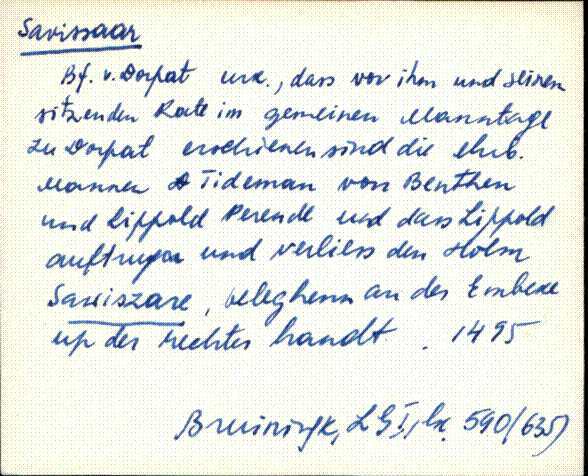 Savissaar
Bf. v. Dorpat urk., dass vor ihm und seinem
sitzenden Rate im gemeinen Manntage
zu Dorpat erschienen sind die ehrb.
Mannen Tideman von Benthen
und Lippold Perende und dass Lippold
auftrugen und verliess den Holm
Saxiszare, beleghenn an der Embeke
up der rechter handt. 1495
Bruiningk, LG I, 590 (635)